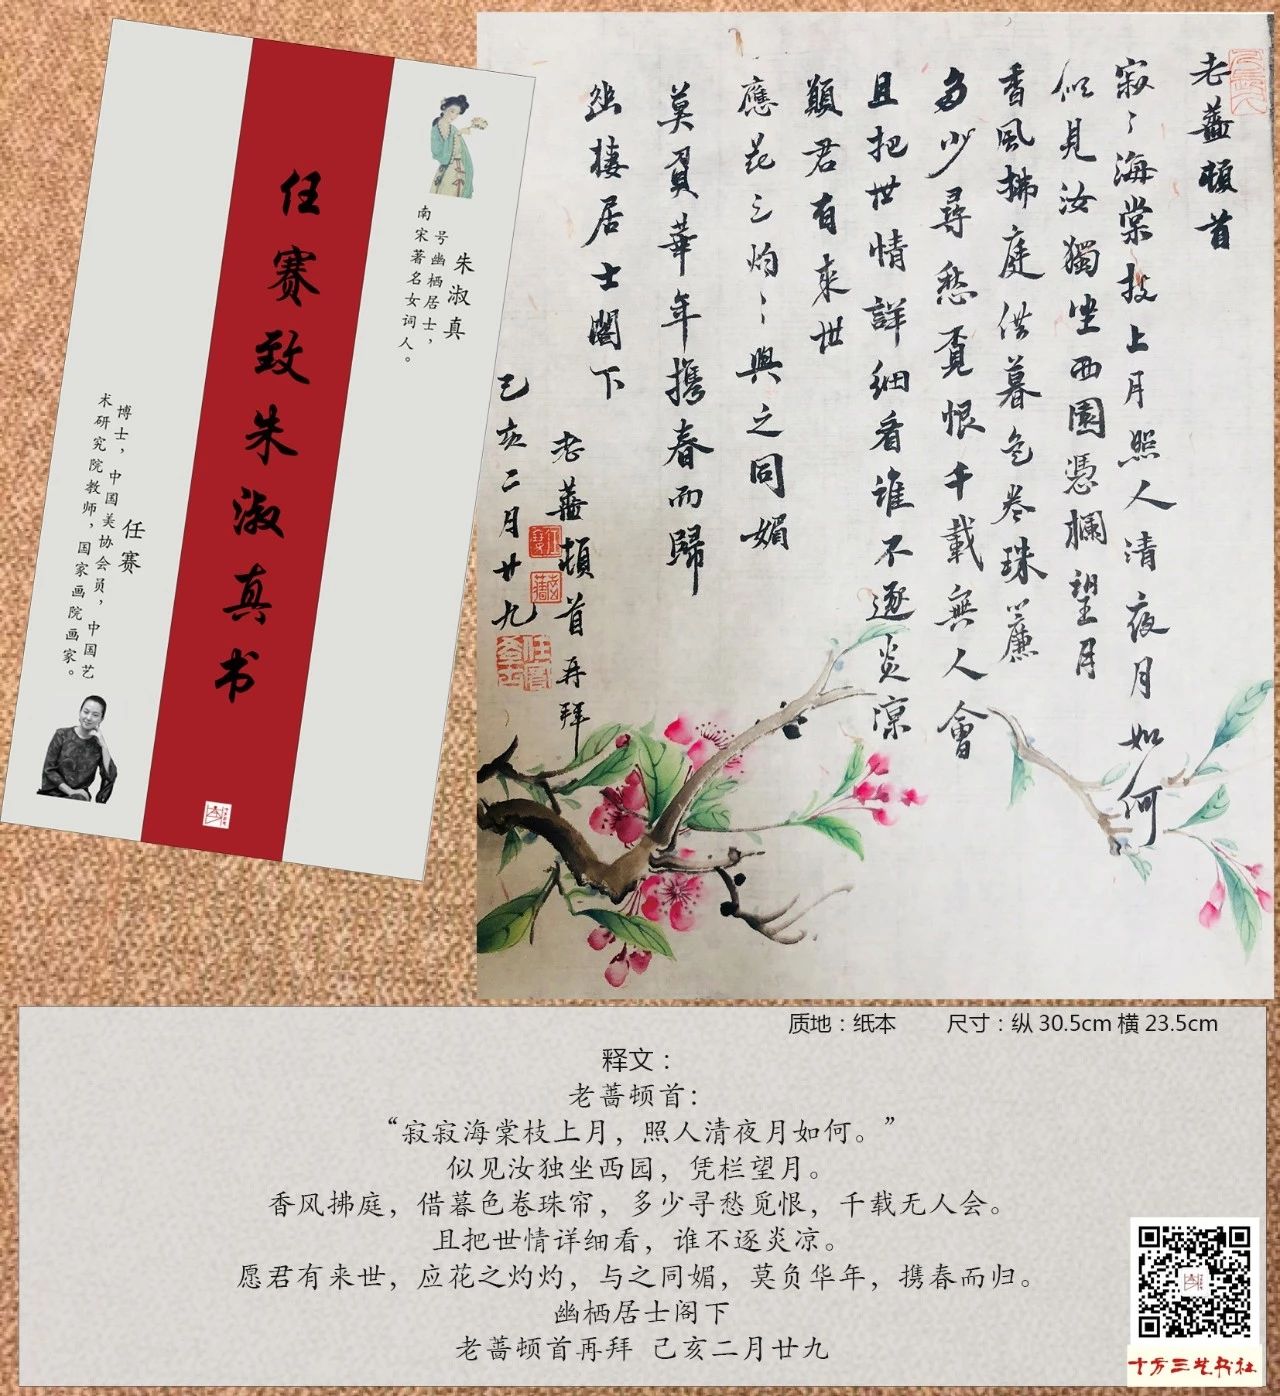 任赛致朱淑真书
朱淑真
号幽栖居士，
南宋著名女词人。
任赛
博士，中国美协会员，中国艺
术研究院教师，国家画院画家。
老薔頓首
寂〻海棠枝上月照人清夜月如何
似見汝獨坐西園憑欄望月
香風拂庭借暮色卷珠簾
多少尋愁覓恨千載無人會
且把世情詳細看誰不逐炎凉
願君有来世
應花之灼〻與之同媚
莫負華年攜春而歸
幽棲居士閣下
老薔頓首再拜
己亥二月廿九
质地：纸本 尺寸：纵 30.5cm 横 23.5cm
释文：
老蔷顿首：
“寂寂海棠枝上月，照人清夜月如何。”
似见汝独坐西园，凭栏望月。
香风拂庭，借暮色卷珠帘，多少寻愁觅恨，千载无人会。
且把世情详细看，谁不逐炎凉。
愿君有来世，应花之灼灼，与之同媚，莫负华年，携春而归。
幽栖居士阁下
老蔷顿首再拜 己亥二月廿九
十方三艺书社